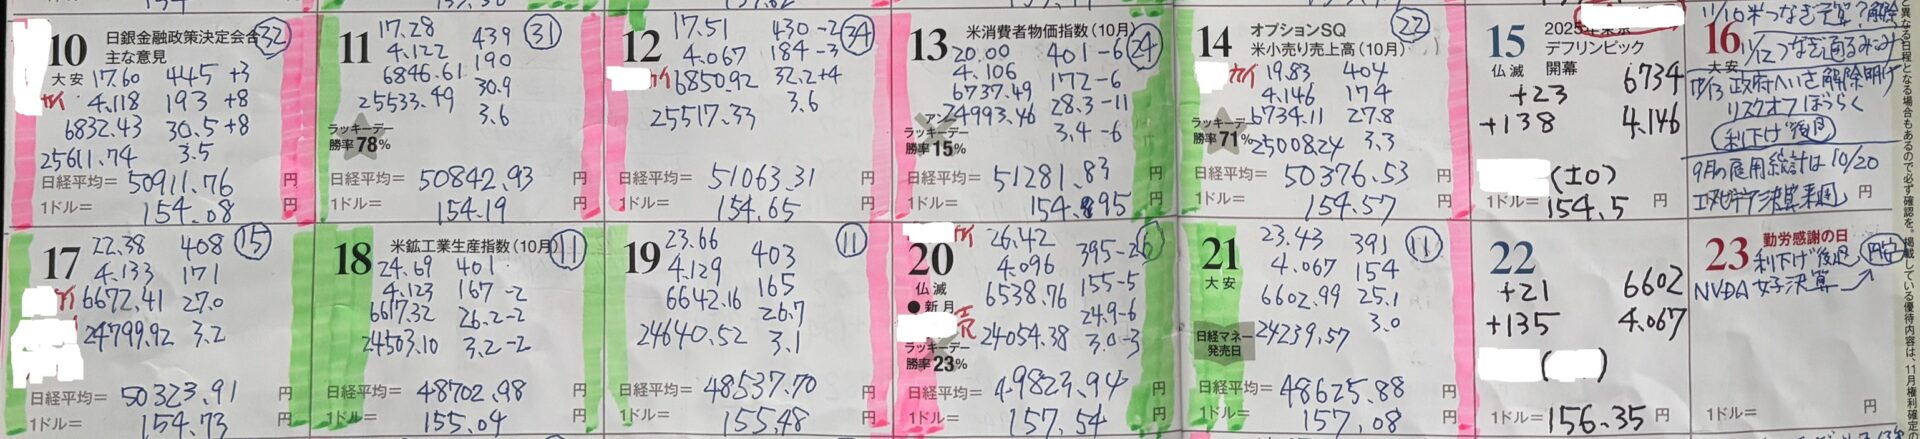 10 日銀金融政策決定会合 ㉜
主な意見
大安 17.60 445 +3
カイ 4.118 193 +8
6832.43 30.5 +8
25611.74 3.5
日経平均= 50911.76 円
1ドル= 154.08 円
11 17.28 439 ㉛
4.122 190
6846.61 30.9
25533.49 3.6
ラッキーデー
勝率78%
日経平均= 50842.93 円
1ドル= 154.19 円
12 17.51 430 -2 ㉞
4.067 184 -3
カイ 6850.92 32.2 +4
25517.33 3.6
日経平均= 51063.31 円
1ドル= 154.65 円
13 米消費者物価指数(10月)
20.00 401 -6 ㉔
4.106 172 -6
6737.49 28.3 -11
アン 24993.46 3.4 -6
ラッキーデー
勝率15%
日経平均= 51281.83 円
1ドル= 154.95 円
14 オプションSQ ㉒
米小売り売上高(10月)
カイ 19.83 404
4.146 174
6734.11 27.8
ラッキーデー
勝率71% 25008.24 3.3
日経平均= 50376.53 円
1ドル= 154.57 円
15 2025年東京
デフリンピック
仏滅 開幕 6734
+23
+138 4.146
(±0)
1ドル= 154.5 円
11/10米つなぎ予算?解除
16 11/12つなぎ通るみこみ
大安
11/13政府へいさ解除明け
リスクオフぼうらく
利下げ後退
9月の雇用統計は10/20
エヌビディア決算来週
円
17 22.38 408 ⑮
4.133 171
カイ 6672.41 27.0
24799.92 3.2
日経平均= 50323.91 円
1ドル= 154.73 円
18 米鉱工業生産指数(10月) ⑪
24.69 401
4.123 167 -2
6617.32 26.2 -2
24503.10 3.2 -2
日経平均= 48702.98 円
1ドル= 155.04 円
19 23.66 403 ⑪
4.129 165
6642.16 26.7
24640.52 3.1
日経平均= 48537.70 円
1ドル= 155.48 円
20 カイ 26.42 395 -2 ⑥
4.096 155 -5
仏滅 6538.76
●新月 24.9 -6
売 24054.38 3.0 -3
ラッキーデー
勝率23%
日経平均= 49823.94 円
1ドル= 157.54 円
21 23.43 391 ⑪
4.067 154
大安 6602.99 25.1
3.0
日経マネー 24239.57
発売日
日経平均= 48625.88 円
1ドル= 157.08 円
22 6602
+21
+135 4.067
( )
1ドル= 156.35 円
23 勤労感謝の日
利下げ後退 円安
NVDA好決算
円
1ドル=
と異なる日程となる場合もあるので必ず確認を。掲載している優待内容は、11月権利確定の